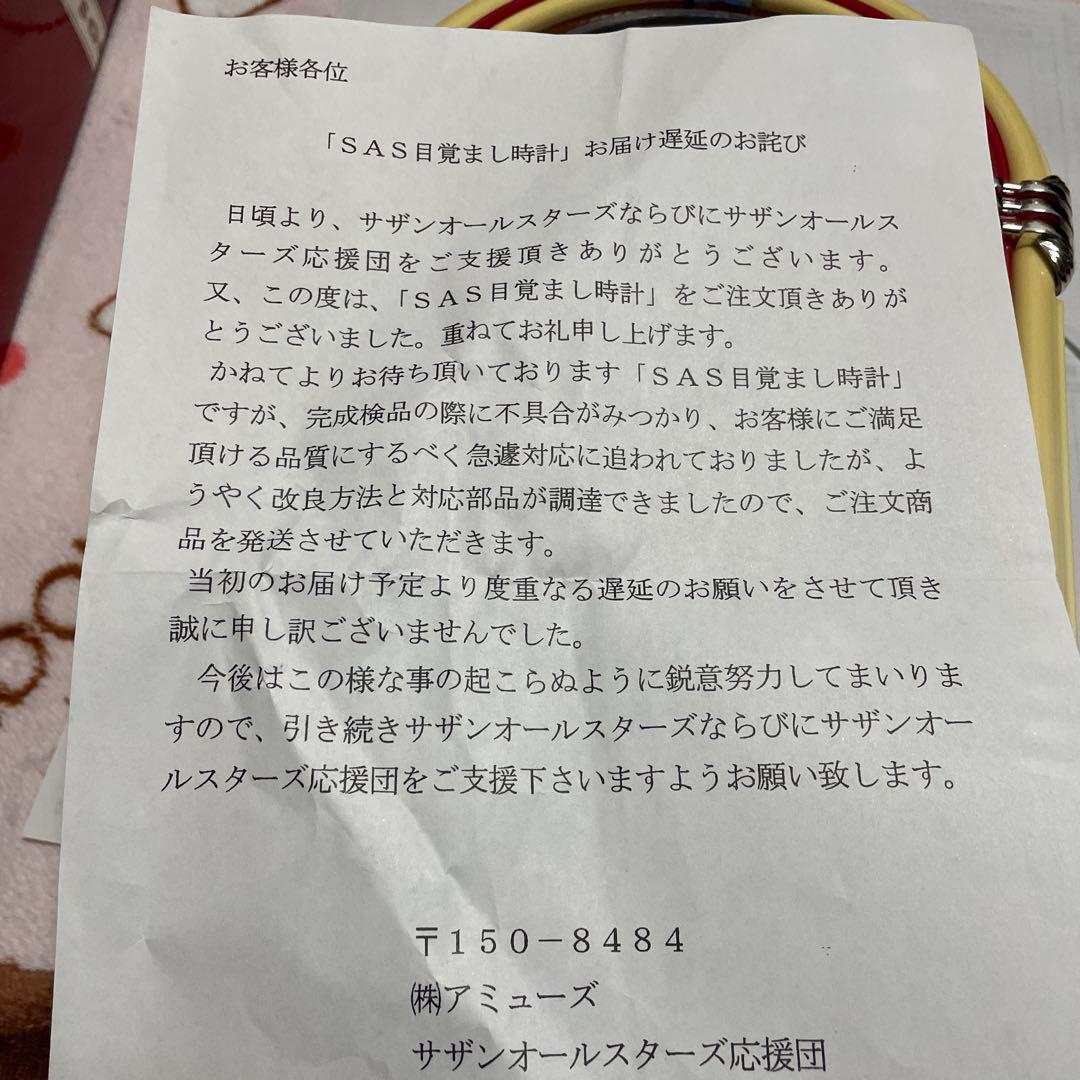 お客様各位
「ＳＡＳ目覚まし時計」お届け遅延のお詫び
日頃より、サザンオールスターズならびにサザンオールス
ターズ応援団をご支援頂きありがとうございます。
又、この度は、「ＳＡＳ目覚まし時計」をご注文頂きありが
とうございました。重ねてお礼申し上げます。
かねてよりお待ち頂いております「ＳＡＳ目覚まし時計」
ですが、完成検品の際に不具合がみつかり、お客様にご満足
頂ける品質にするべく急遽対応に追われておりましたが、よ
うやく改良方法と対応部品が調達できましたので、ご注文商
品を発送させていただきます。
当初のお届け予定より度重なる遅延のお願いをさせて頂き
誠に申し訳ございませんでした。
今後はこの様な事の起こらぬように鋭意努力してまいりま
すので、引き続きサザンオールスターズならびにサザンオー
ルスターズ応援団をご支援下さいますようお願い致します。
〒１５０－８４８４
㈱アミューズ
サザンオールスターズ応援団